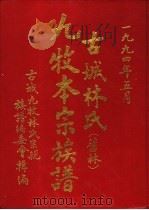 一九九四年五月
古城林氏(旧林)
九牧本宗族譜
古城九牧林氏宗親
族譜編委會撰編